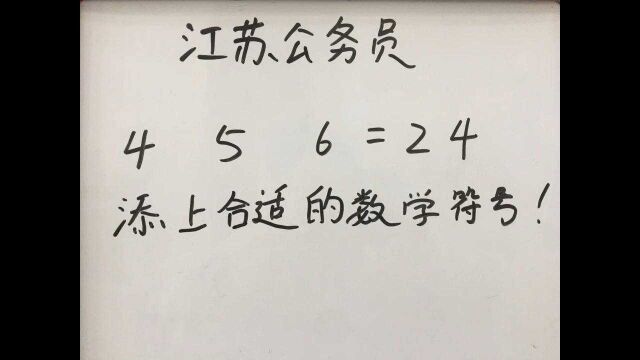 江苏公务员
4 5 6 = 24
添上合适的数学符号!